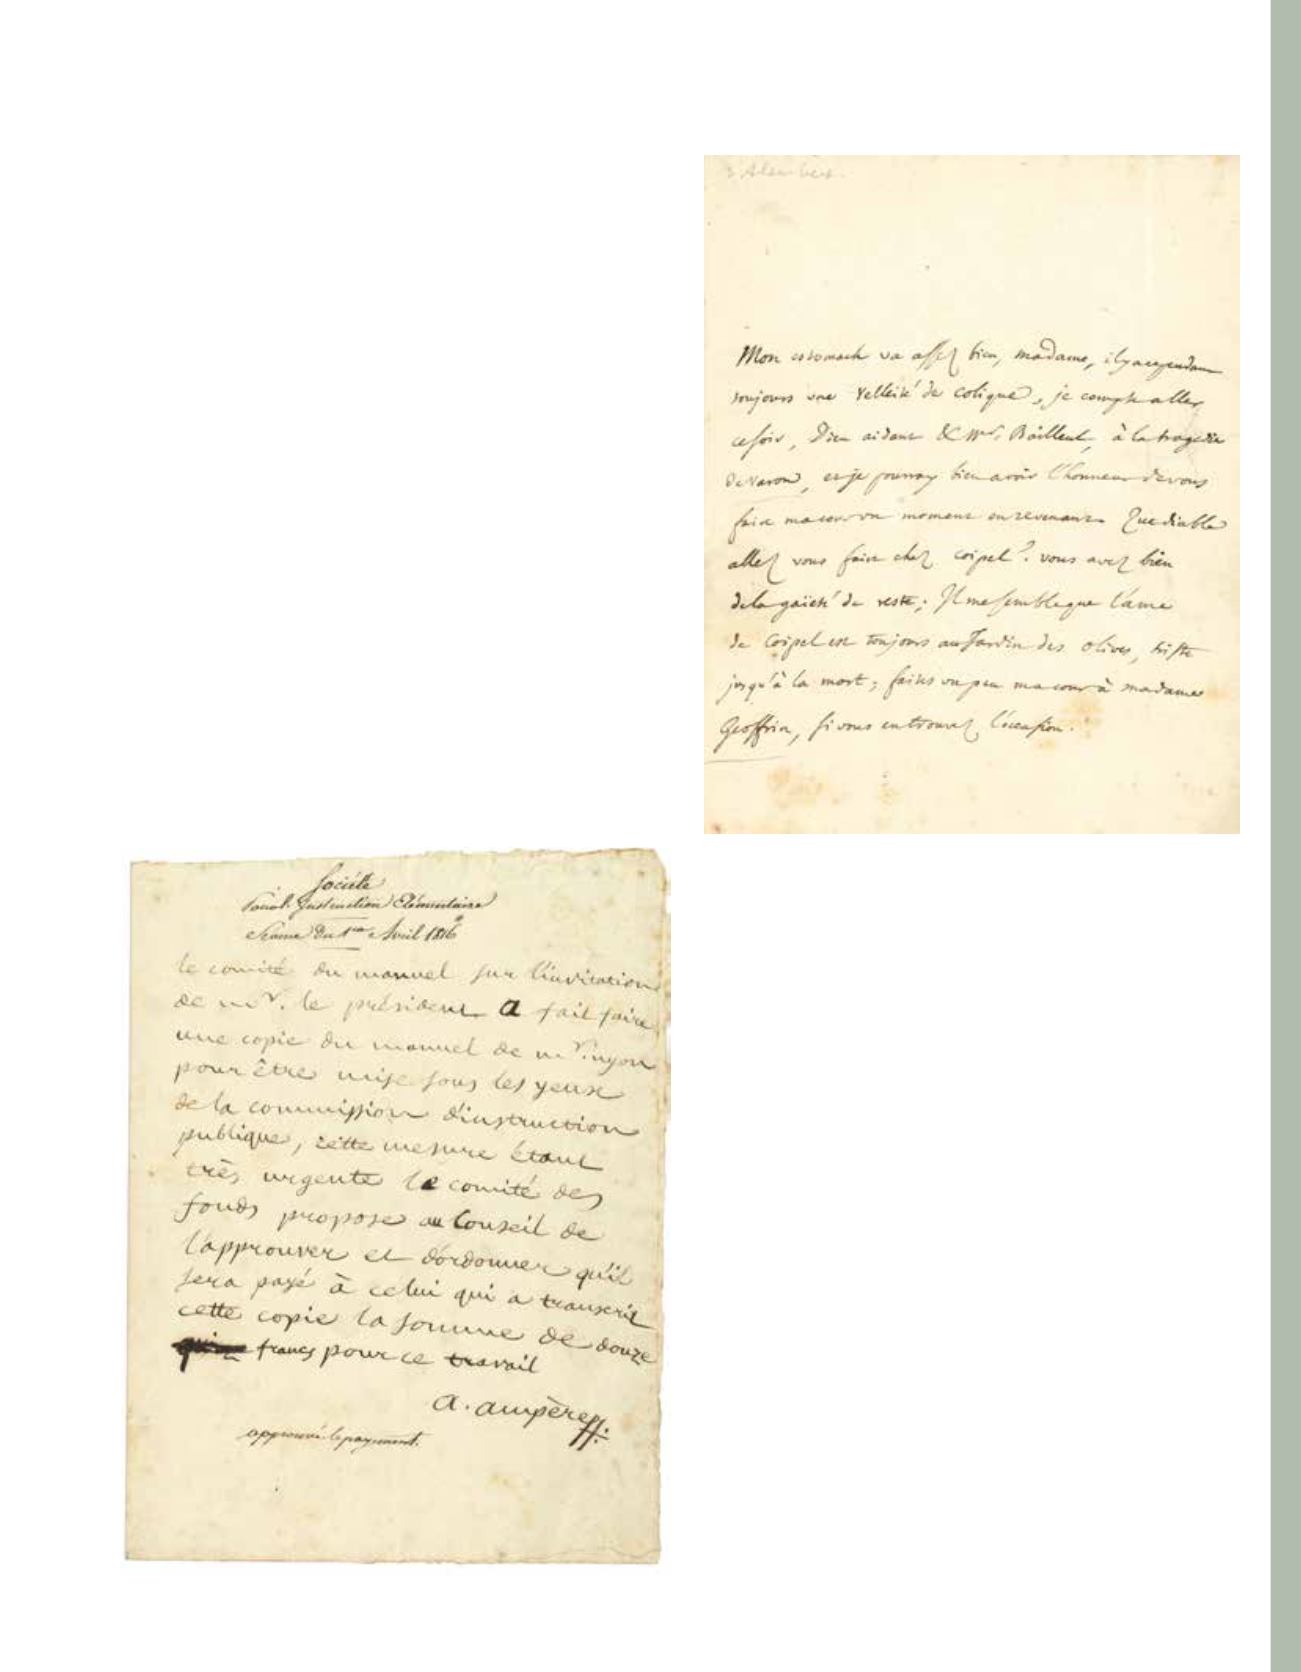 d'Alembert.
Mon estomach va assez bien, madame, il y a cependant
toujours une velleité de colique, je compte aller
ce soir, Dieu aidant & Mr. Bailleul, à la tragedie
de Varon, et je pourray bien avoir l'honneur de vous
faire ma cour un moment en revenant. Que diable
allez vous faire chez Coipel? vous avez bien
de la gaieté de reste; Il me semble que l'ame
de Coipel est toujours au Jardin des olives, triste
jusqu'à la mort; faites un peu ma cour à madame
Geoffrin, si vous en trouvez l'occasion.
Société
Instruction Elémentaire
Séance du 1er Avril 1816
le comité du manuel sur l'invitation
de mr. le président a fait faire
une copie du manuel de mr. nyon
pour être mise sous les yeux
de la commission d'instruction
publique, cette mesure étant
très urgente le comité des
fonds propose au Conseil de
l'approuver et d'ordonner qu'il
sera payé à celui qui a transcrit
cette copie la somme de douze
francs pour ce travail
a. ampère
approuvé le payement.